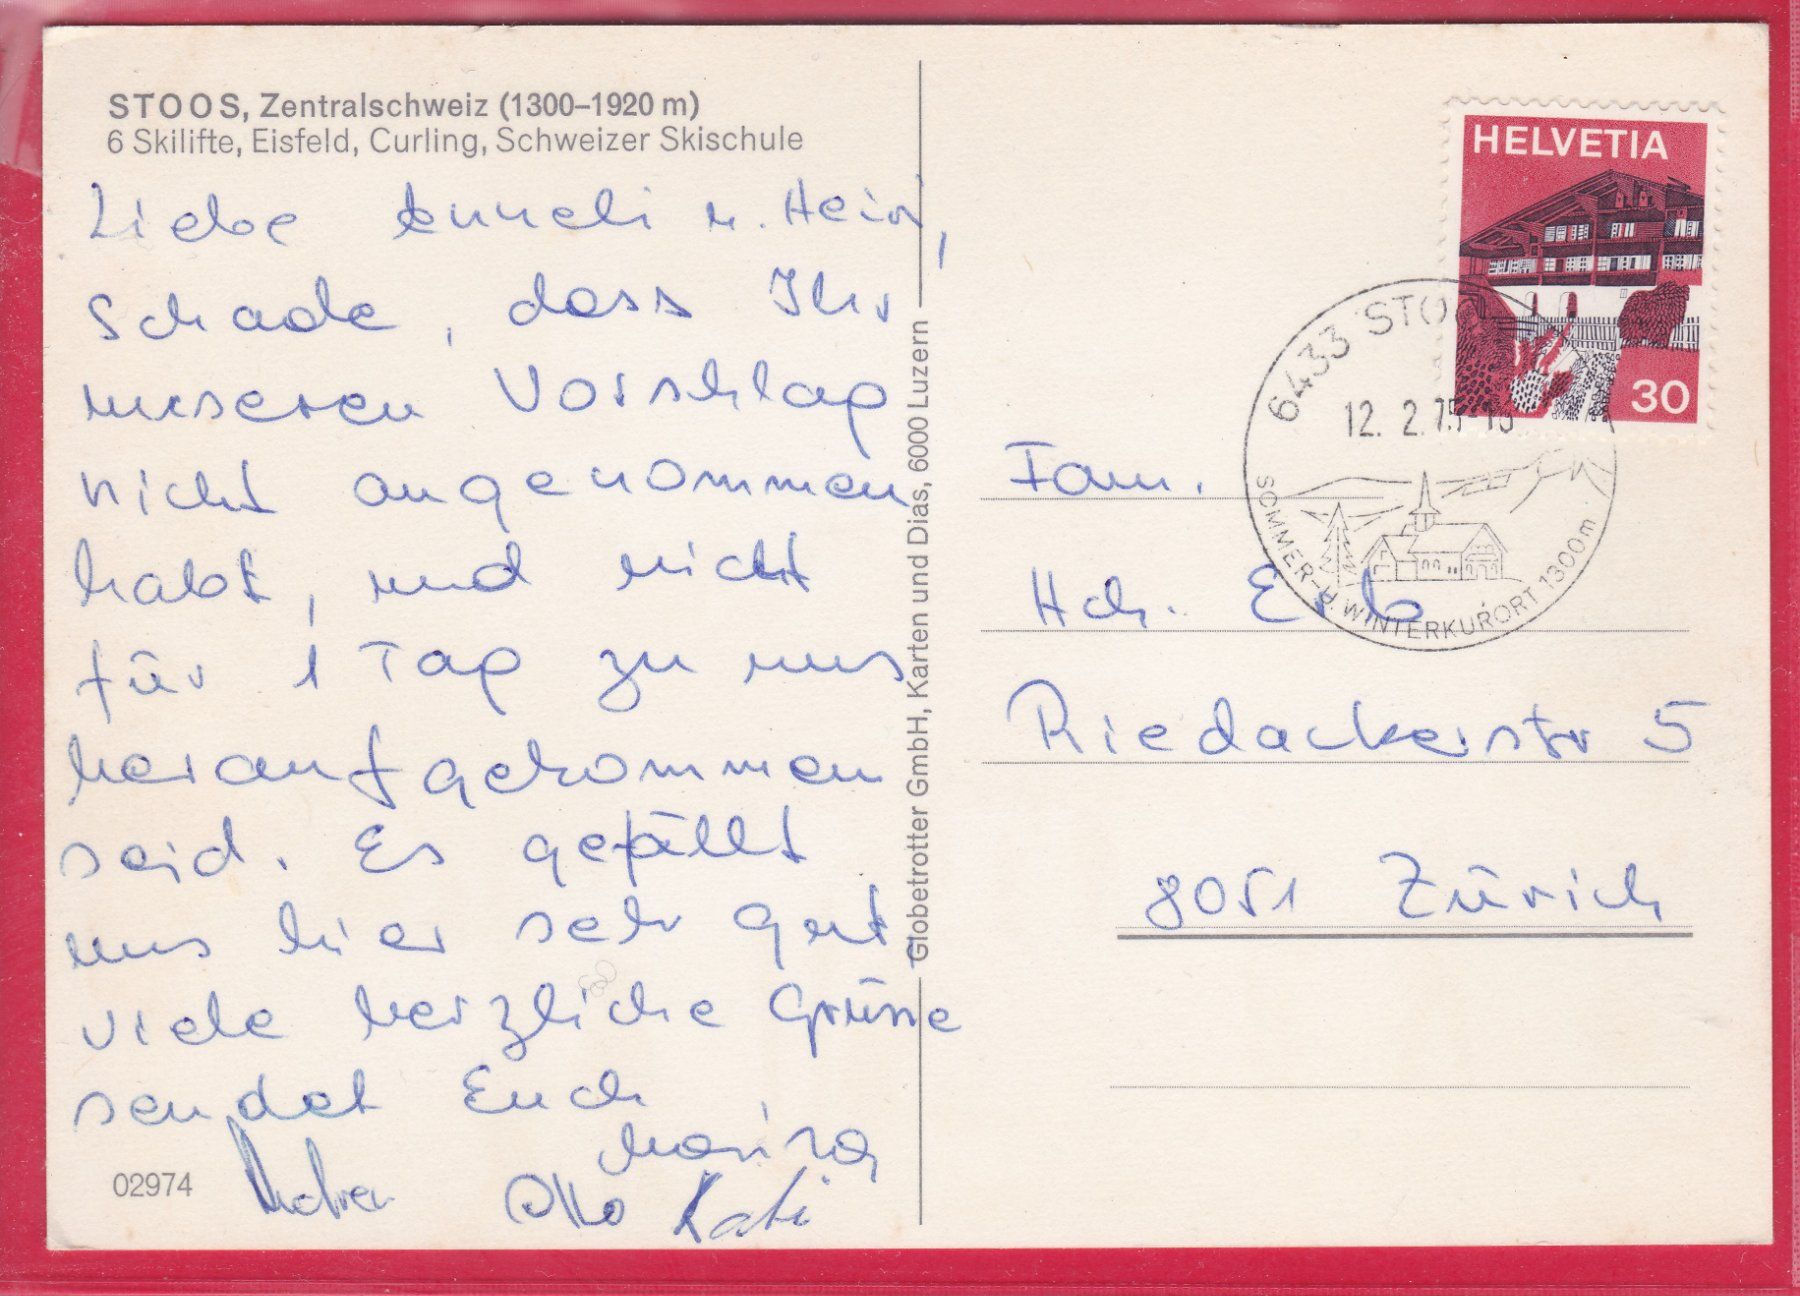 STOOS, Zentralschweiz (1300–1920 m)
6 Skilifte, Eisfeld, Curling, Schweizer Skischule
Liebe Anneli u. Heiri,
Schade, dass Ihr
unseren Vorschlag
nicht angenommen
habt, und nicht
für 1 Tag zu uns
heraufgekommen
seid. Es gefällt
uns hier sehr gut
viele herzliche Grüsse
sendet Euch
Otto Kati
02974
Globetrotter GmbH, Karten und Dias, 6000 Luzern
HELVETIA
30
6433 STOO
12. 2. 75-
SOMMER-U. WINTERKURORT 1300m
Fam.
Hch. Erb
Riedackerstr 5
8051 Zürich